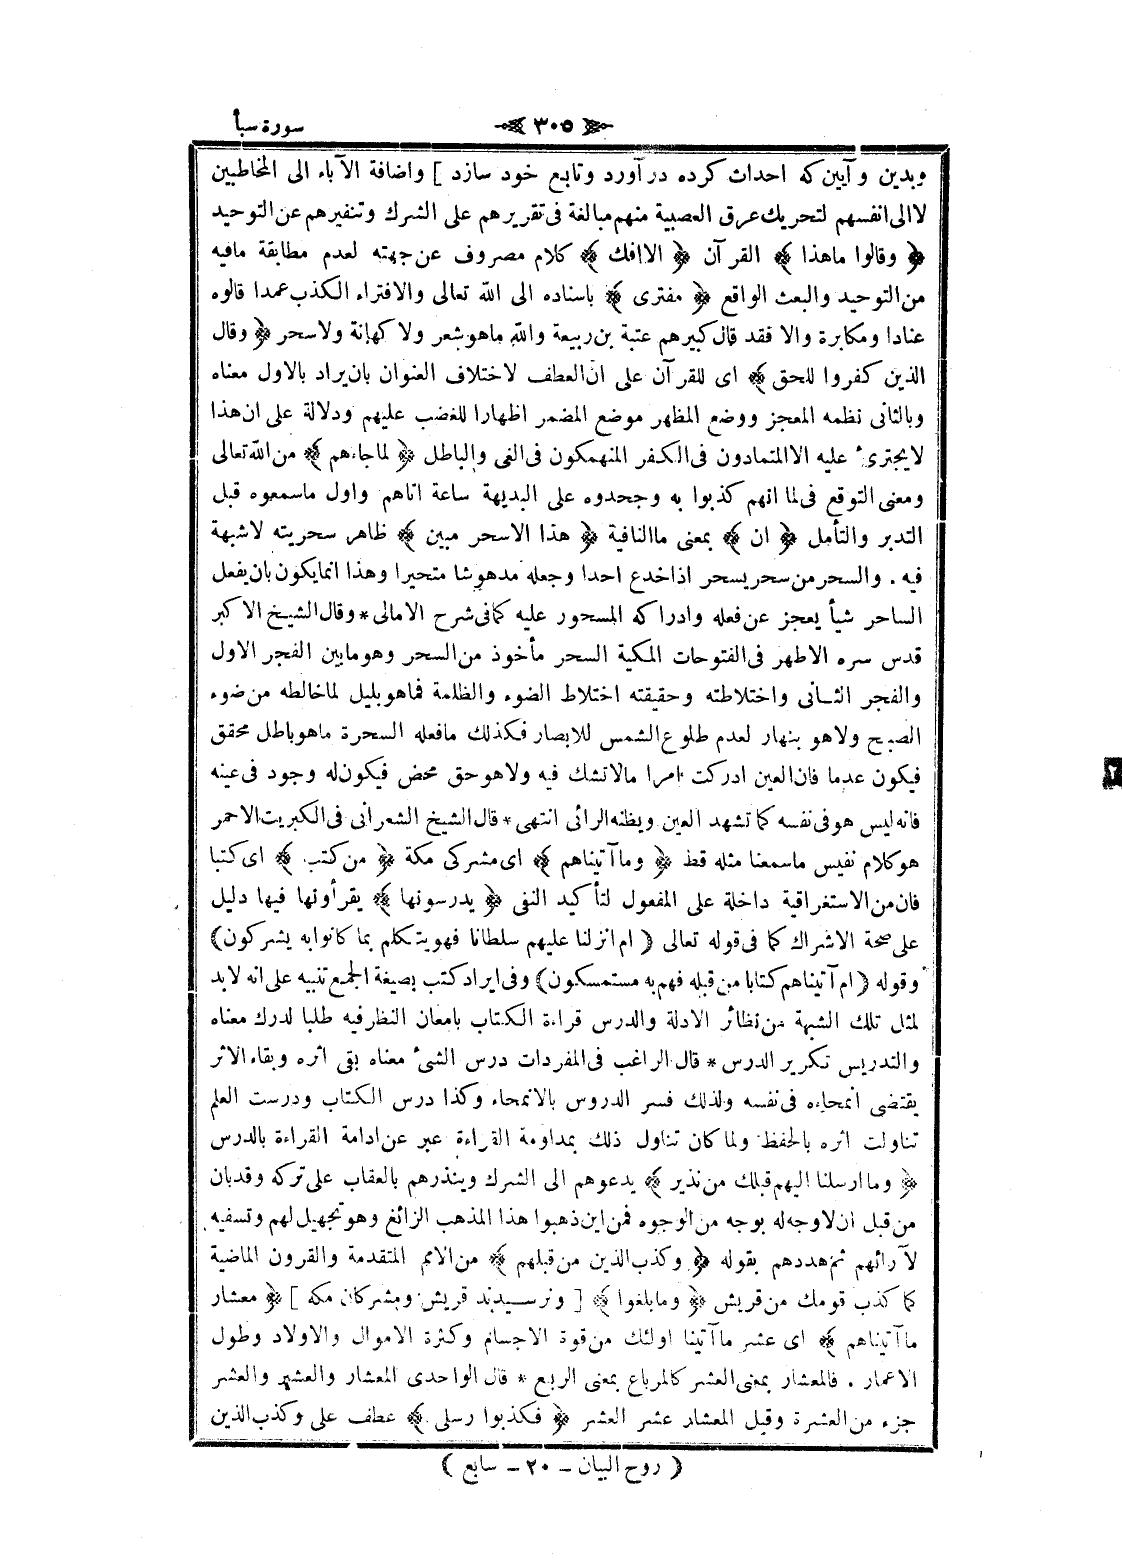 سورة سبأ
٣٠٥
وبدين وآيين كه احداث كرده در آورد وتابع خود سازد ] واضافة الآباء الى المخاطبين
لا الى انفسهم لتحريك عرق العصبية منهم مبالغة فى تقريرهم على الشرك وتنفيرهم عن التوحيد
﴿ وقالوا ما هذا ﴾ القرآن ﴿ الا افك ﴾ كلام مصروف عن جهته لعدم مطابقة ما فيه
من التوحيد والبعث الواقع ﴿ مفترى ﴾ باسناده الى الله تعالى والافتراء الكذب عمدا قالوه
عنادا ومكابرة والا فقد قال كبيرهم عتبة بن ربيعة والله ما هو شعر ولا كهانة ولا سحر ﴿ وقال
الذين كفروا للحق ﴾ اى للقرآن على ان العطف لاختلاف العنوان بان يراد بالاول معناه
وبالثانى نظمه المعجز ووضع المظهر موضع المضمر اظهارا للغضب عليهم ودلالة على ان هذا
لا يجترئ عليه الا المتمادون فى الكفر المنهمكون فى الغى والباطل ﴿ لما جاءهم ﴾ من الله تعالى
ومعنى التوقع فى لما انهم كذبوا به وجحدوه على البديهة ساعة اتاهم واول ما سمعوه قبل
التدبر والتأمل ﴿ ان ﴾ بمعنى ما النافية ﴿ هذا الا سحر مبين ﴾ ظاهر سحريته لا شبهة
فيه . والسحر من سحر يسحر اذا خدع احدا وجعله مدهوشا متحيرا وهذا انما يكون بان يفعل
الساحر شيأ يعجز عن فعله وادراكه المسحور عليه كما فى شرح الامالى * وقال الشيخ الاكبر
قدس سره الاطهر فى الفتوحات المكية السحر مأخوذ من السحر وهو ما بين الفجر الاول
والفجر الثانى واختلاطته وحقيقته اختلاط الضوء والظلمة فما هو بليل لما خالطه من ضوء
الصبح ولا هو بنهار لعدم طلوع الشمس للابصار فكذلك ما فعله السحرة ما هو باطل محقق
فيكون عدما فان العين ادركت امرا ما لا تشك فيه ولا هو حق محض فيكون له وجود فى عينه
فانه ليس هو فى نفسه كما تشهد العين ويظنه الرائى انتهى * قال الشيخ الشعرانى فى الكبريت الاحمر
هو كلام نفيس ما سمعنا مثله قط ﴿ وما آتيناهم ﴾ اى مشركى مكة ﴿ من كتب ﴾ اى كتبا
فان من الاستغراقية داخلة على المفعول لتأكيد النفى ﴿ يدرسونها ﴾ يقرأونها فيها دليل
على صحة الاشراك كما فى قوله تعالى ( ام انزلنا عليهم سلطانا فهو يتكلم بما كانوا به يشركون)
وقوله ( ام آتيناهم كتابا من قبله فهم به مستمسكون) وفى ايراد كتب بصيغة الجمع تنبيه على انه لابد
لمثل تلك الشبهة من نظائر الادلة والدرس قراءة الكتاب بامعان النظر فيه طلبا لدرك معناه
والتدريس تكرير الدرس * قال الراغب فى المفردات درس الشئ معناه بقى اثره وبقاء الاثر
يقتضى انمحاءه فى نفسه ولذلك فسر الدروس بالانمحاء وكذا درس الكتاب ودرست العلم
تناولت اثره بالحفظ ولما كان تناول ذلك بمداومة القراءة عبر عن ادامة القراءة بالدرس
﴿ وما ارسلنا اليهم قبلك من نذير ﴾ يدعوهم الى الشرك وينذرهم بالعقاب على تركه وقد بان
من قبل ان لا وجه له بوجه من الوجوه فمن اين ذهبوا هذا المذهب الزائغ وهو تجهيل لهم وتسفيه
لآرائهم ثم هددهم بقوله ﴿ وكذب الذين من قبلهم ﴾ من الامم المتقدمة والقرون الماضية
كما كذب قومك من قريش ﴿ وما بلغوا ﴾ [ ونرسيدند قريش ومشركان مكه ] ﴿ معشار
ما آتيناهم ﴾ اى عشر ما آتينا اولئك من قوة الاجسام وكثرة الاموال والاولاد وطول
الاعمار . فالمعشار بمعنى العشر كالمرباع بمعنى الربع * قال الواحدى المعشار والعشير والعشر
جزء من العشرة وقيل المعشار عشر العشر ﴿ فكذبوا رسلى ﴾ عطف على وكذب الذين
( روح البيان – ٢٠ – سابع )